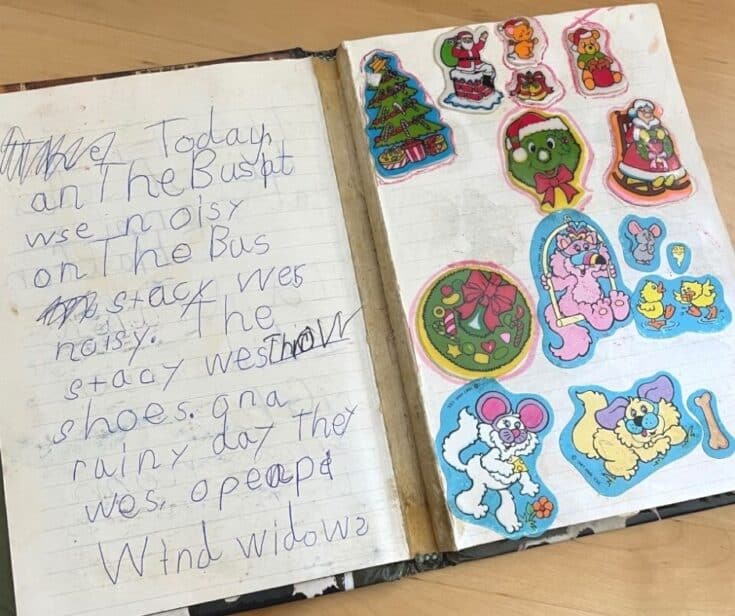 Today
an The Bus pt
wse noisy
on The Bus
stacy wes
noisy. The
stacy wes Thow
shoes. and
rainy day they
wes. opeapd
Wind widows